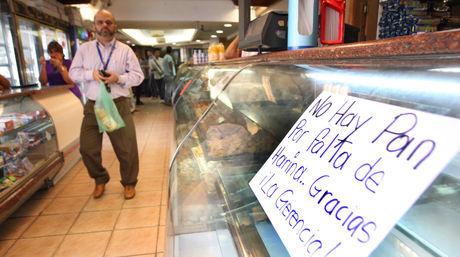 No Hay Pan
Por falta de
Harina.. Gracias
¡La Gerencia!